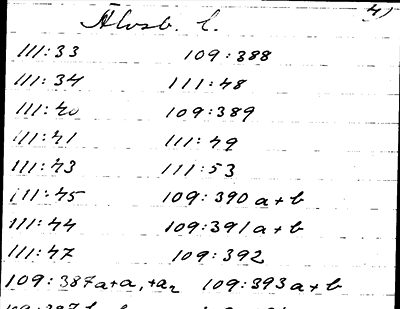 4)
Älvsb. l.
111:33 109:388
111:34 111:48
111:40 109:389
111:41 111:49
111:43 111:53
111:45 109:390 a+b
111:44 109:391 a+b
111:47 109:392
109:387a+a,+a₂ 109:393 a+b